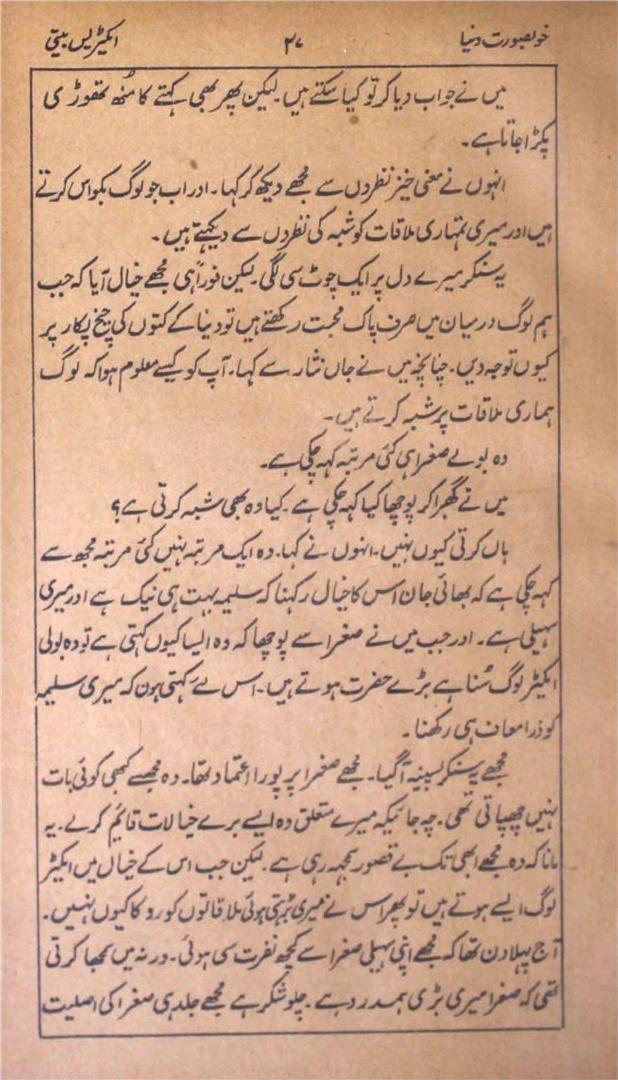 خوبصورت دنیا ۲۷ ایکٹریس بیتی
میں نے جواب دیا کر تو کیا سکتے ہیں۔ لیکن پھر بھی کہتے کا منھ تھوڑی
پکڑا جاتا ہے۔
انہوں نے معنی خیز نظروں سے مجھے دیکھ کر کہا۔ اور اب جو لوگ بکواس کرتے
ہیں اور میری تمہاری ملاقات کو شبہ کی نظروں سے دیکھتے ہیں۔
یہ سنکر میرے دل پر ایک چوٹ سی لگی۔ لیکن فوراً ہی مجھے خیال آیا کہ جب
ہم لوگ درمیان میں صرف پاک محبت رکھتے ہیں تو دنیا کے کتوں کی چیخ پکار پر
کیوں توجہ دیں۔ چنانچہ میں نے جاں نثار سے کہا۔ آپ کو کیسے معلوم ہوا کہ لوگ
ہماری ملاقات پر شبہ کرتے ہیں۔
وہ بولے صغرا ہی کئی مرتبہ کہہ چکی ہے۔
میں نے گھبرا کر پوچھا کیا کہہ چکی ہے۔ کیا وہ بھی شبہ کرتی ہے؟
ہاں کرتی کیوں نہیں۔ انہوں نے کہا۔ وہ ایک مرتبہ نہیں کئی مرتبہ مجھ سے
کہہ چکی ہے کہ بھائی جان اس کا خیال رکھنا کہ سلیمہ بہت ہی نیک ہے اور میری
سہیلی ہے۔ اور جب میں نے صغرا سے پوچھا کہ وہ ایسا کیوں کہتی ہے تو وہ بولی
ایکٹر لوگ سُنا ہے بڑے حضرت ہوتے ہیں۔ اس لئے کہتی ہوں کہ میری سلیمہ
کو ذرا معاف ہی رکھنا۔
مجھے یہ سنکر پسینہ آگیا۔ مجھے صغرا پر پورا اعتماد تھا۔ وہ مجھسے کبھی کوئی بات
نہیں چھپاتی تھی۔ چہ جائیکہ میرے متعلق وہ ایسے برے خیالات قائم کرلے۔ یہ
مانا کہ وہ مجھے ابھی تک بے قصور سمجھ رہی ہے۔ لیکن جب اس کے خیال میں ایکٹر
لوگ ایسے ہوتے ہیں تو پھر اس نے میری بڑہتی ہوئی ملاقاتوں کو روکا کیوں نہیں۔
آج پہلا دن تھا کہ مجھے اپنی سہیلی صغرا سے کچھ نفرت سی ہوئی۔ ورنہ میں سمجھا کرتی
تھی کہ صغرا میری بڑی ہمدرد ہے۔ چلو شکر ہے مجھے جلدی ہی صغرا کی اصلیت